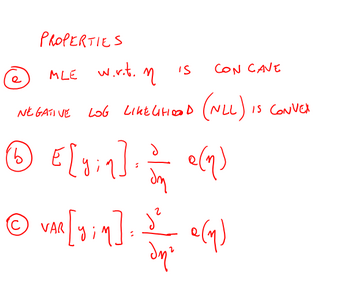 PROPERTIES
(a) MLE w.r.t. η IS CONCAVE
NEGATIVE LOG LIKELIHOOD (NLL) IS CONVEX
(b) E[y;η] = ∂/∂η a(η)
(c) VAR[y;η] = ∂²/∂η² a(η)